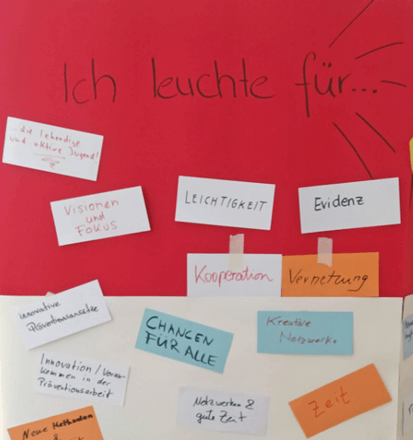 Ich leuchte für...
...die lebendige
und aktive Jugend!
Visionen
und
Fokus
LEICHTIGKEIT
Evidenz
Kooperation
Vernetzung
innovative
Präventionsansätze
CHANCEN
FÜR ALLE
Kreative
Netzwerke
Innovation/Voran-
kommen in der
Präventionsarbeit
Netzwerken &
gute Zeit
Zeit
Neue Methoden
&